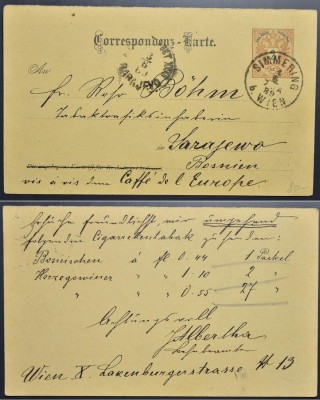 Correspondenz-Karte.
An
Fr. Rosa Böhm
Tabaktrafikinhaberin
Sarajewo
Bosnien
vis à vis dem Caffé de l'Europe.
SIMMERING
WIEN
Ersuche freundlichst, mir umgehend
folgenden Cigarrettentabak zu senden:
Bosnischen á fl 0.44 1 Packel
Herzegowiner " 1.10 2 "
" " 0.55 27 "
Achtungsvoll
Wien X. Laxenburgerstrasse № 13